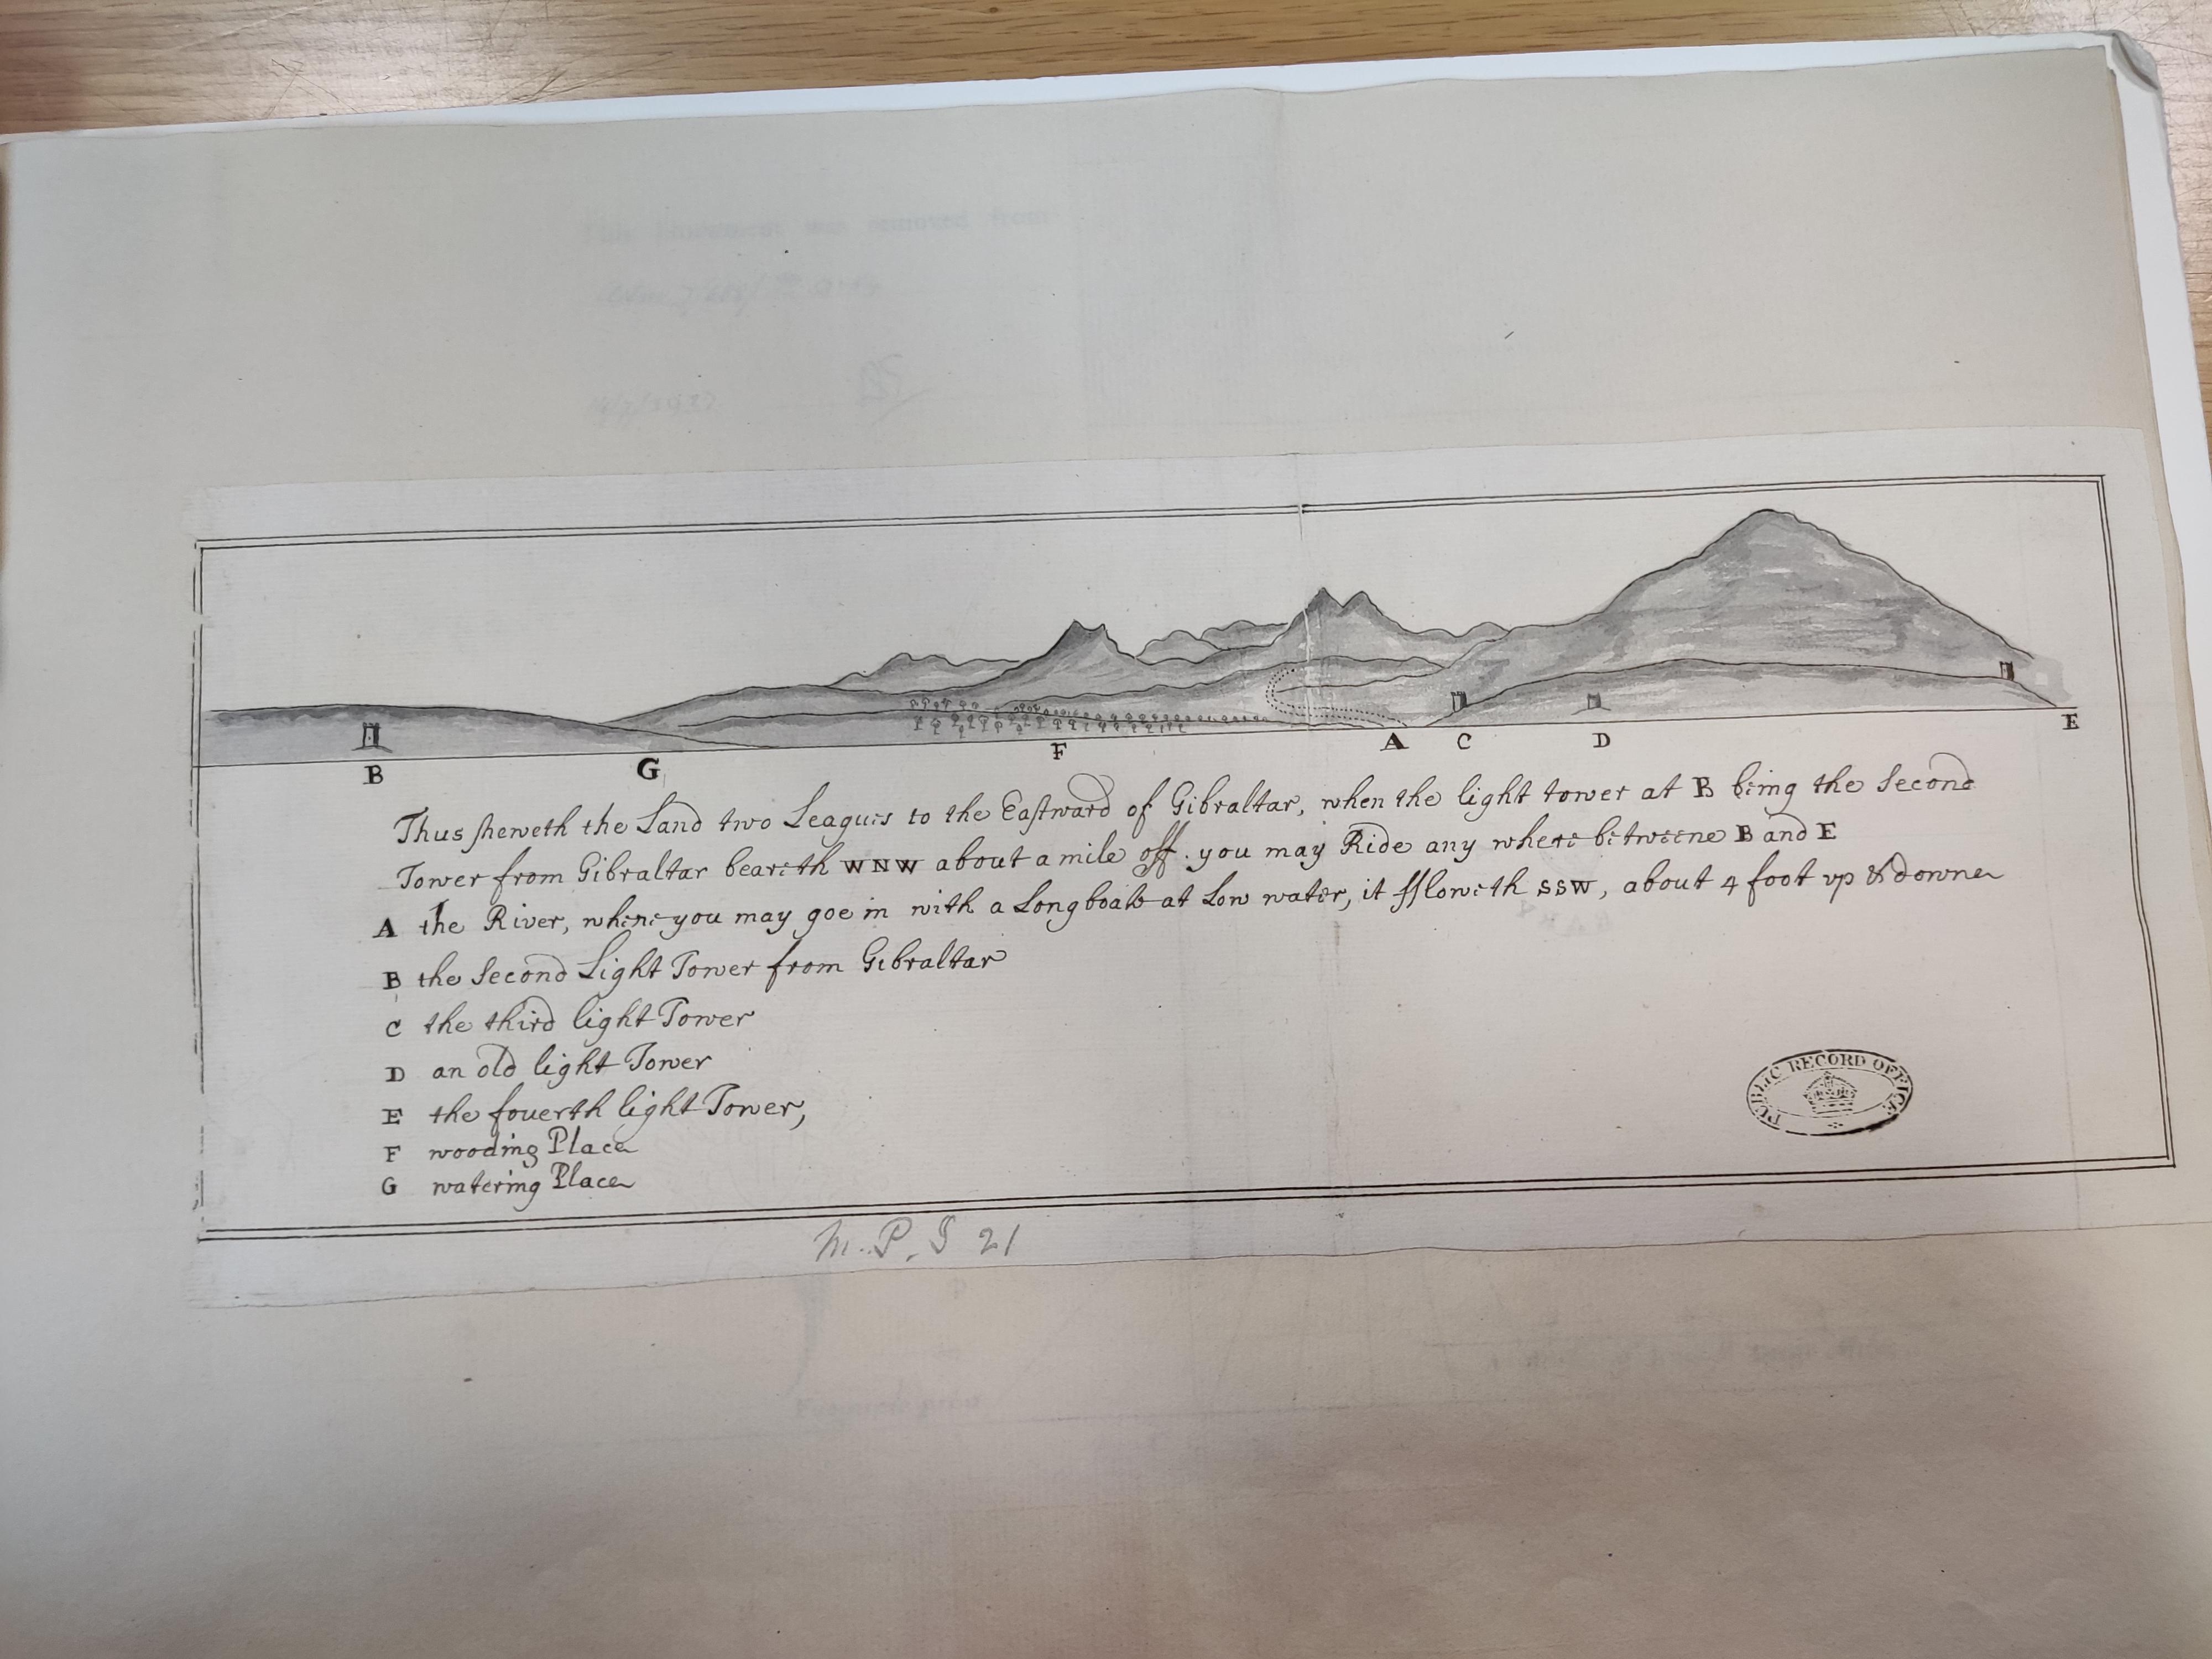 This Document was removed from
B G F A C D E
Thus sheweth the Land two Leagues to the Eastward of Gibraltar, when the light tower at B being the Second
Tower from Gibraltar beareth WNW about a mile off. you may Ride any where betweene B and E
A the River, where you may goe in with a Longboate at Low water, it ffloweth SSW, about 4 foot up & downe
B the Second Light Tower from Gibraltar
C the third light Tower
D an old light Tower
E the fouerth light Tower,
F wooding Place
G watering Place
PUBLIC RECORD OFFICE
M.P.I 21